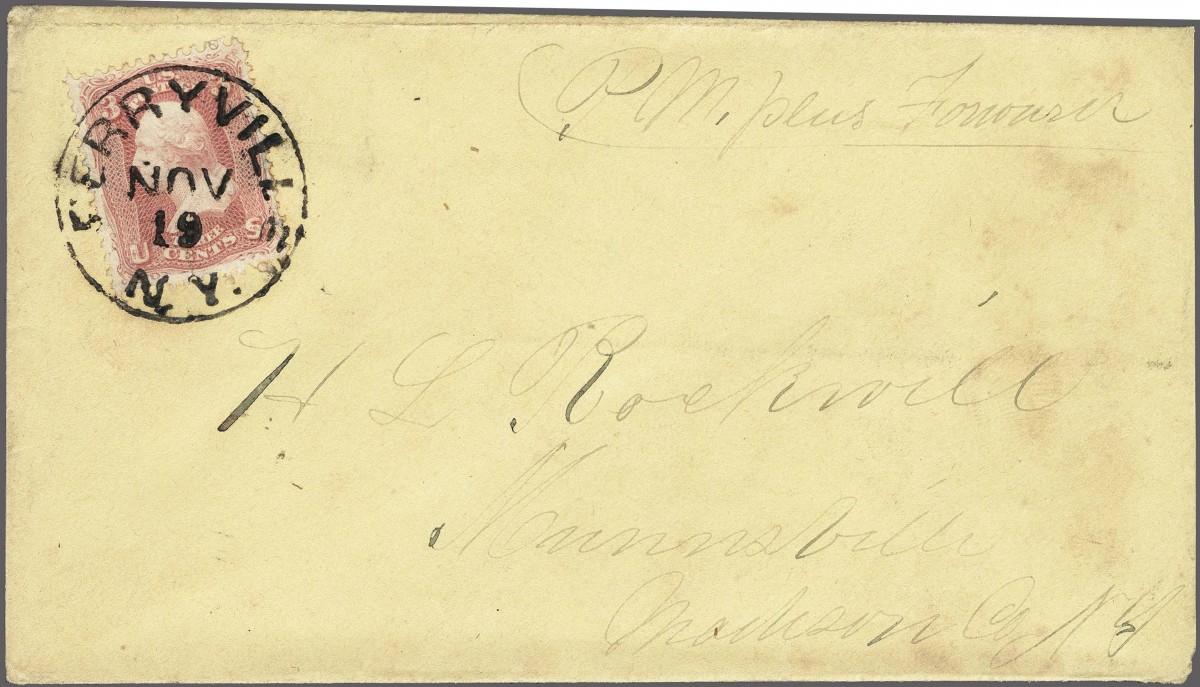 P M, pleas Forward
PERRYVILLE
NOV
19
N.Y.
U S
THREE
CENTS
H L Rockwill
Munnsville
Madison Co NY